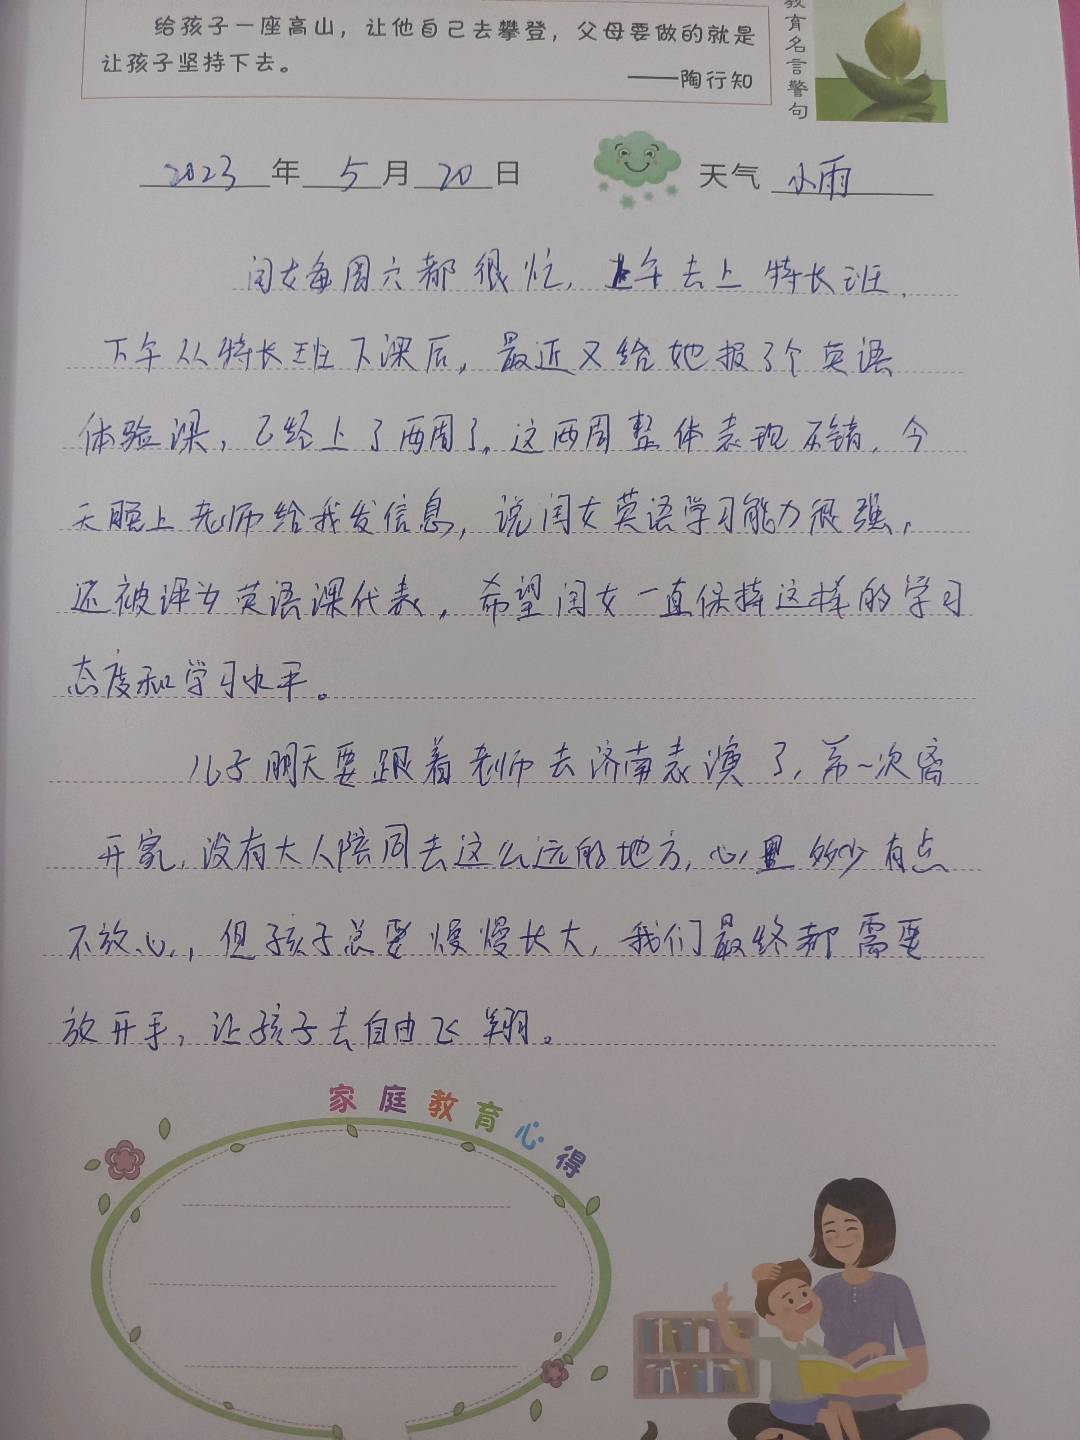 给孩子一座高山，让他自己去攀登，父母要做的就是
让孩子坚持下去。
——陶行知
教育名言警句
2023年5月20日 天气 小雨
闺女每周六都很忙，上午去上特长班，
下午从特长班下课后，最近又给她报了个英语
体验课，已经上了两周了。这两周整体表现不错，今
天晚上老师给我发信息，说闺女英语学习能力很强，
还被评为英语课代表，希望闺女一直保持这样的学习
态度和学习水平。
儿子明天要跟着老师去济南表演了，第一次离
开家，没有大人陪同去这么远的地方，心里多少有点
不放心，但孩子总要慢慢长大，我们最终都需要
放开手，让孩子去自由飞翔。
家庭教育心得